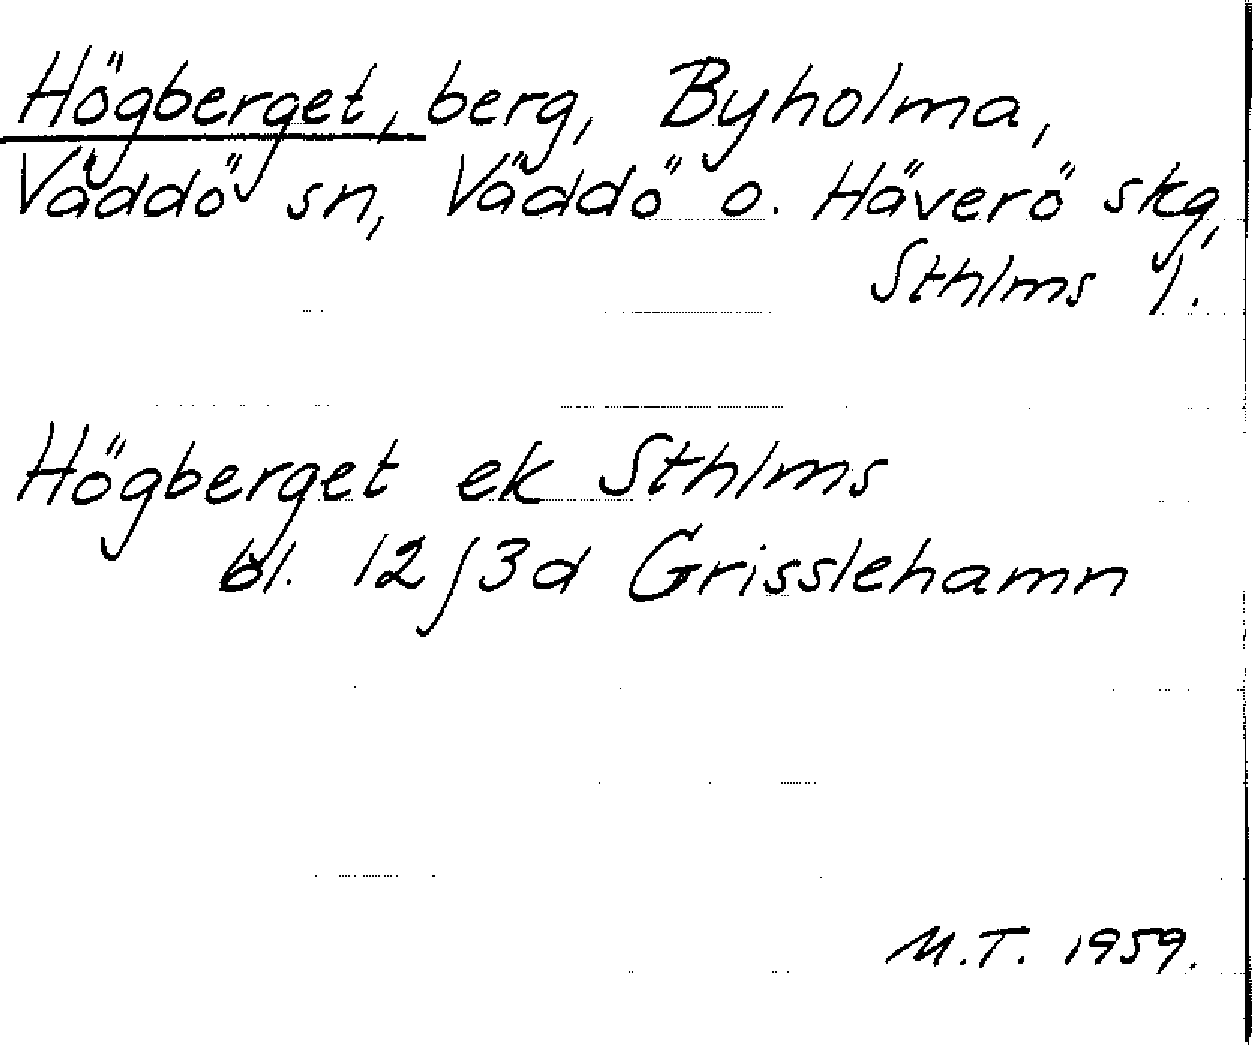 Högberget, berg, Byholma,
Väddö sn, Väddö o. Häverö skg,
Sthlms l.
Högberget ek Sthlms
bl. 12 J 3d Grisslehamn
M.T. 1959.